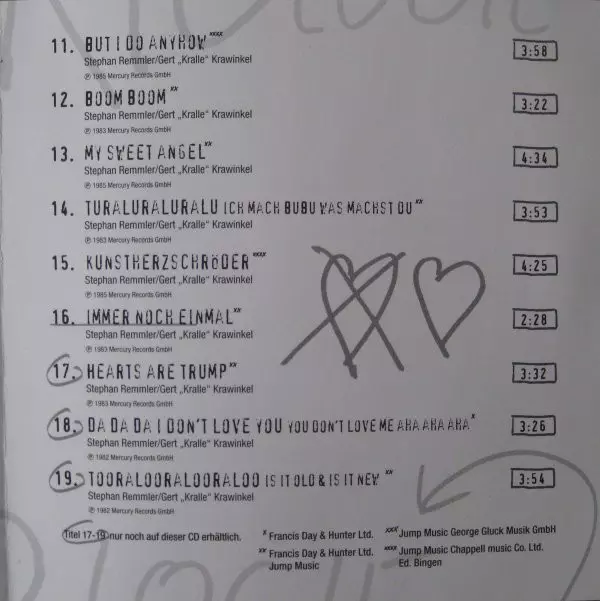 11. BUT I DO ANYHOW xxxx 3:58
Stephan Remmler/Gert „Kralle“ Krawinkel
℗ 1985 Mercury Records GmbH
12. BOOM BOOM xx 3:22
Stephan Remmler/Gert „Kralle“ Krawinkel
℗ 1983 Mercury Records GmbH
13. MY SWEET ANGEL xx 4:34
Stephan Remmler/Gert „Kralle“ Krawinkel
℗ 1985 Mercury Records GmbH
14. TURALURALURALU ICH MACH BUBU WAS MACHST DU xx 3:53
Stephan Remmler/Gert „Kralle“ Krawinkel
℗ 1983 Mercury Records GmbH
15. KUNSTHERZSCHRöDER xxxx 4:25
Stephan Remmler/Gert „Kralle“ Krawinkel
℗ 1985 Mercury Records GmbH
16. IMMER NOCH EINMAL xx 2:28
Stephan Remmler/Gert „Kralle“ Krawinkel
℗ 1983 Mercury Records GmbH
17. HEARTS ARE TRUMP xx 3:32
Stephan Remmler/Gert „Kralle“ Krawinkel
℗ 1983 Mercury Records GmbH
18. DA DA DA I DON'T LOVE YOU YOU DON'T LOVE ME AHA AHA AHA x 3:26
Stephan Remmler/Gert „Kralle“ Krawinkel
℗ 1982 Mercury Records GmbH
19. TOORALOORALOORALOO IS IT OLD & IS IT NEW xx 3:54
Stephan Remmler/Gert „Kralle“ Krawinkel
℗ 1982 Mercury Records GmbH
Titel 17-19 nur noch auf dieser CD erhältlich.
x Francis Day & Hunter Ltd.
xx Francis Day & Hunter Ltd.
Jump Music
xxx Jump Music George Gluck Musik GmbH
xxxx Jump Music Chappell music Co. Ltd.
Ed. Bingen